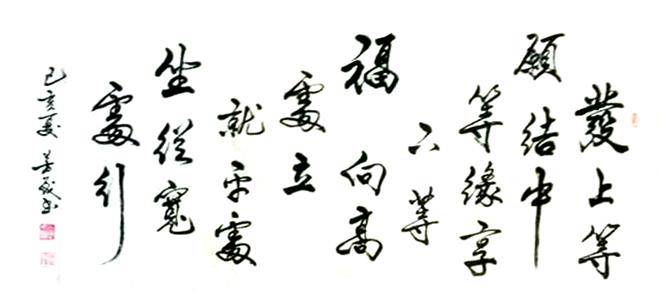 發上等
願結中
等緣享
下等
福向高
處立
就平處
坐從寬
處行
己亥夏